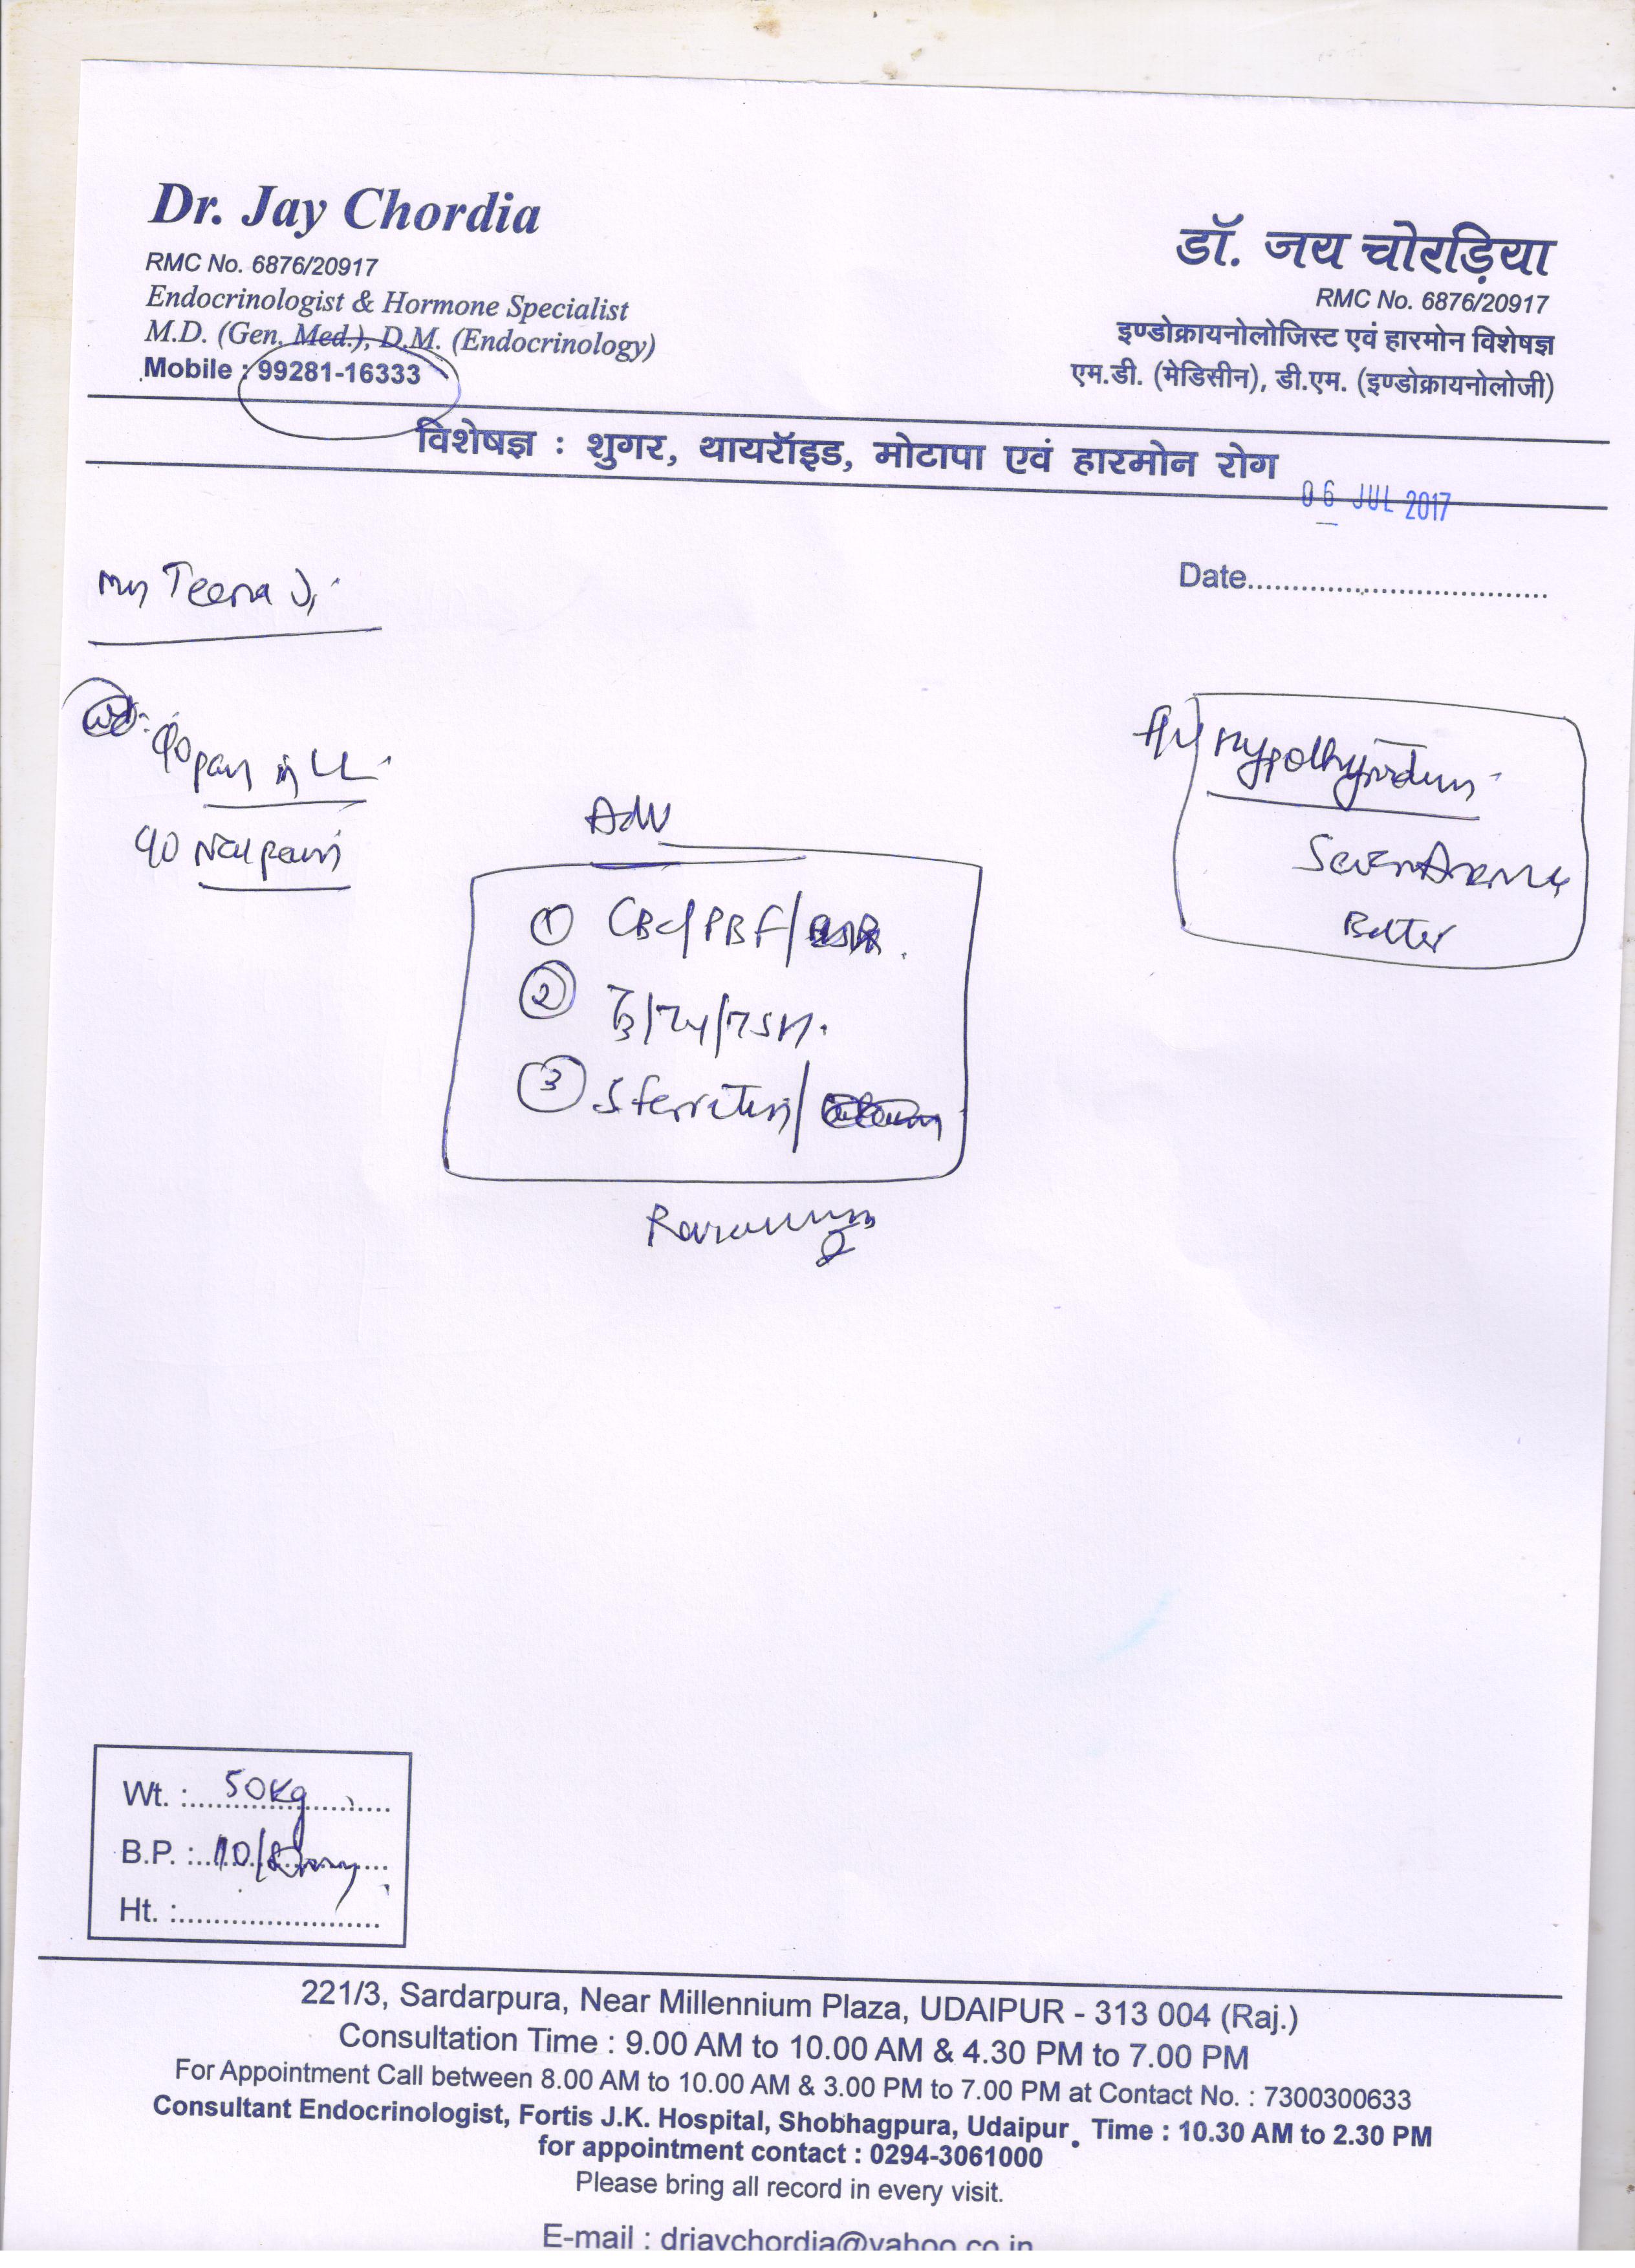 Dr. Jay Chordia
RMC No. 6876/20917
Endocrinologist & Hormone Specialist
M.D. (Gen. Med.), D.M. (Endocrinology)
Mobile : 99281-16333
डॉ. जय चोरड़िया
RMC No. 6876/20917
इण्डोक्रायनोलोजिस्ट एवं हारमोन विशेषज्ञ
एम.डी. (मेडिसीन), डी.एम. (इण्डोक्रायनोलोजी)
विशेषज्ञ : शुगर, थायरॉइड, मोटापा एवं हारमोन रोग
06 JUL 2017
Date
Teena
in LL
pain
Hypothyroidism
Better
Adv
① CBC/PBF/
② T3/T4/TSH
③ S ferritin/
Wt. : 50kg
B.P. :
Ht. :
221/3, Sardarpura, Near Millennium Plaza, UDAIPUR - 313 004 (Raj.)
Consultation Time : 9.00 AM to 10.00 AM & 4.30 PM to 7.00 PM
For Appointment Call between 8.00 AM to 10.00 AM & 3.00 PM to 7.00 PM at Contact No. : 7300300633
Consultant Endocrinologist, Fortis J.K. Hospital, Shobhagpura, Udaipur. Time : 10.30 AM to 2.30 PM
for appointment contact : 0294-3061000
Please bring all record in every visit.
E-mail : drjaychordia@yahoo.co.in